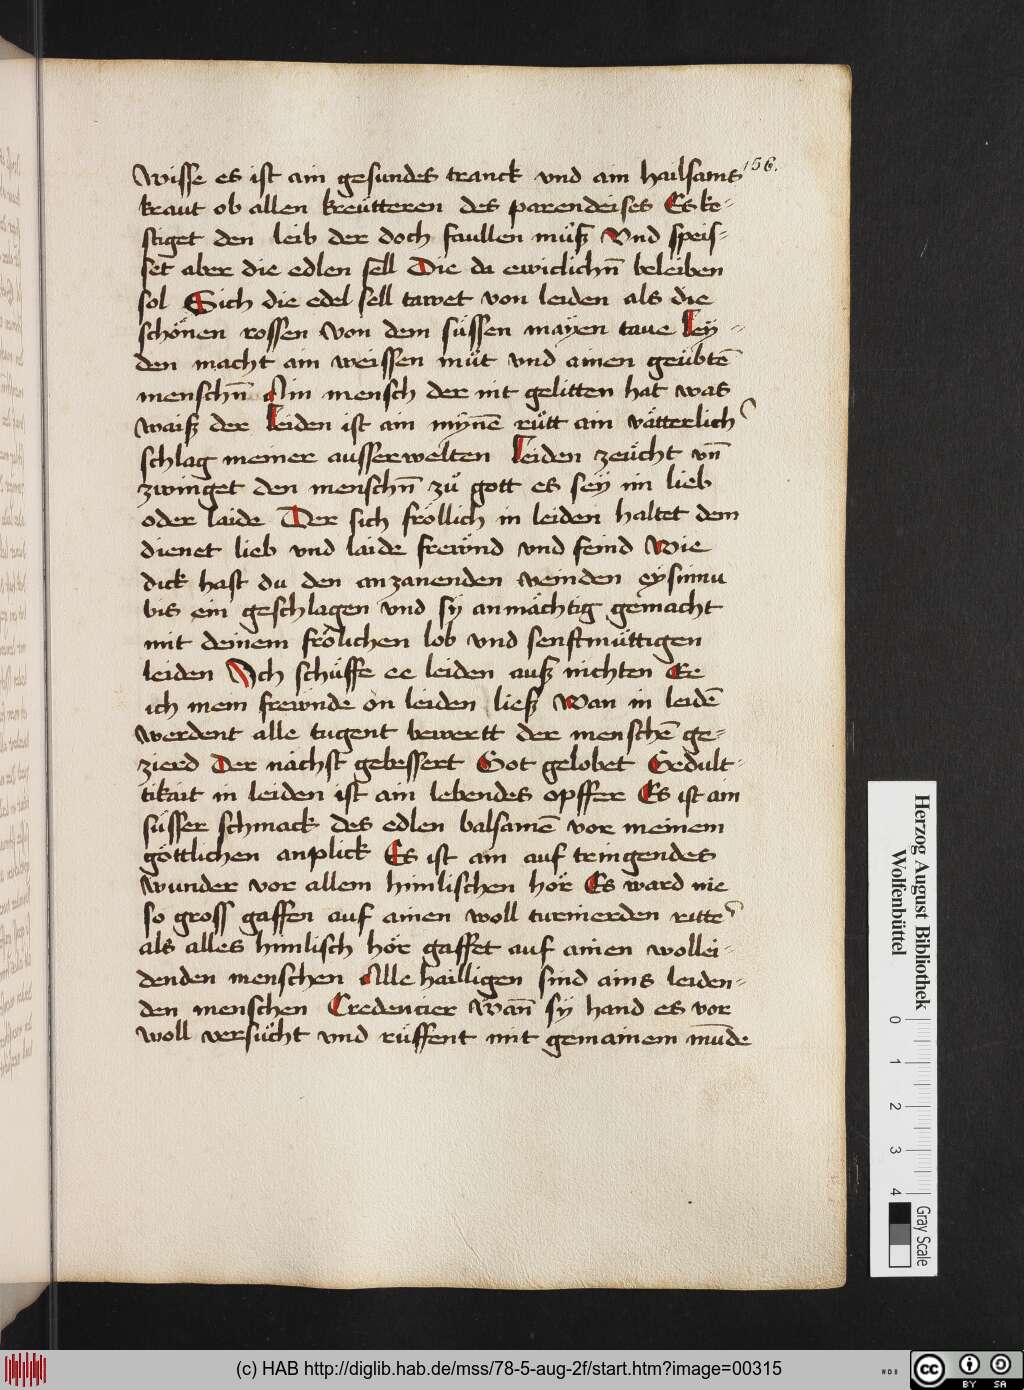 156.
Wisse es ist ain gesundes tranck vnd ain hailsams
kraut ob allen kreütteren des parendeises Es ke-
stiget den leib der doch faullen müß Vnd speis-
set aber die edlen sell Die da ewiclichn̄ beleiben
sol Sich die edel sell tawet von leiden als die
schönen rossen von dem süssen mayen taue Ley-
den macht ain weissen müt vnd ainen geübtē
menschn̄ Ain mensch der nit gelitten hat was
waiß der Leiden ist ain mynē rütt ain vätterlich
schlag meiner ausserwelten Leiden zeücht vn̄
zwinget den menschn̄ zü gott es sey im lieb
oder laide Der sich fröllich in leiden haltet dem
dienet lieb vnd laide frewnd vnd feind Wie
dick hast du den anzanenden veinden eysinnu
bis ein geschlagen vnd sy anmächtig gemacht
mit deinem frölichen lob vnd senftmüttigen
leiden Ich schüffe ee leiden auß nichten Ee
ich mein frewnde on leiden ließ Wan in leidē
werdent alle tugent bewertt der menschē ge-
zierd Der nächst gebessert Got gelobet Gedult-
tikait in leiden ist ain lebendes opffer Es ist ain
süsser schmack des edlen balsamē vor meinem
göttlichen anplick Es ist ain auf tringendes
wunder vor allem himlischen hör Es ward nie
so gross gaffen auf ainen woll turnierden ritter
als alles himlisch hör gaffet auf ainen wollei-
denden menschen Alle hailligen sind ains leiden-
den menschen Credencier Wan̄ sy hand es vor
woll versücht vnd rüffent mit gemainem mu̅de
Herzog August Bibliothek
Wolfenbüttel
0 1 2 3 4
Gray Scale
(c) HAB http://diglib.hab.de/mss/78-5-aug-2f/start.htm?image=00315
WDB
cc BY SA